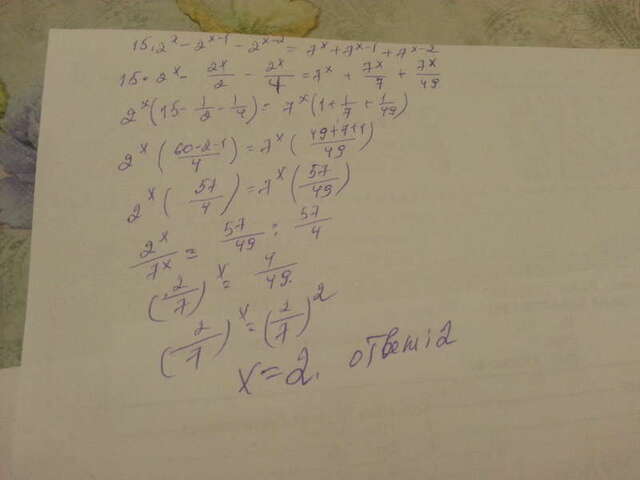 15·2^x - 2^(x-1) - 2^(x-2) = 7^x + 7^(x-1) + 7^(x-2)
15·2^x - 2^x/2 - 2^x/4 = 7^x + 7^x/7 + 7^x/49
2^x(15 - 1/2 - 1/4) = 7^x(1 + 1/7 + 1/49)
2^x((60-2-1)/4) = 7^x((49+7+1)/49)
2^x(57/4) = 7^x(57/49)
2^x/7^x = 57/49 : 57/4
(2/7)^x = 4/49.
(2/7)^x = (2/7)^2
x=2. ответ: 2